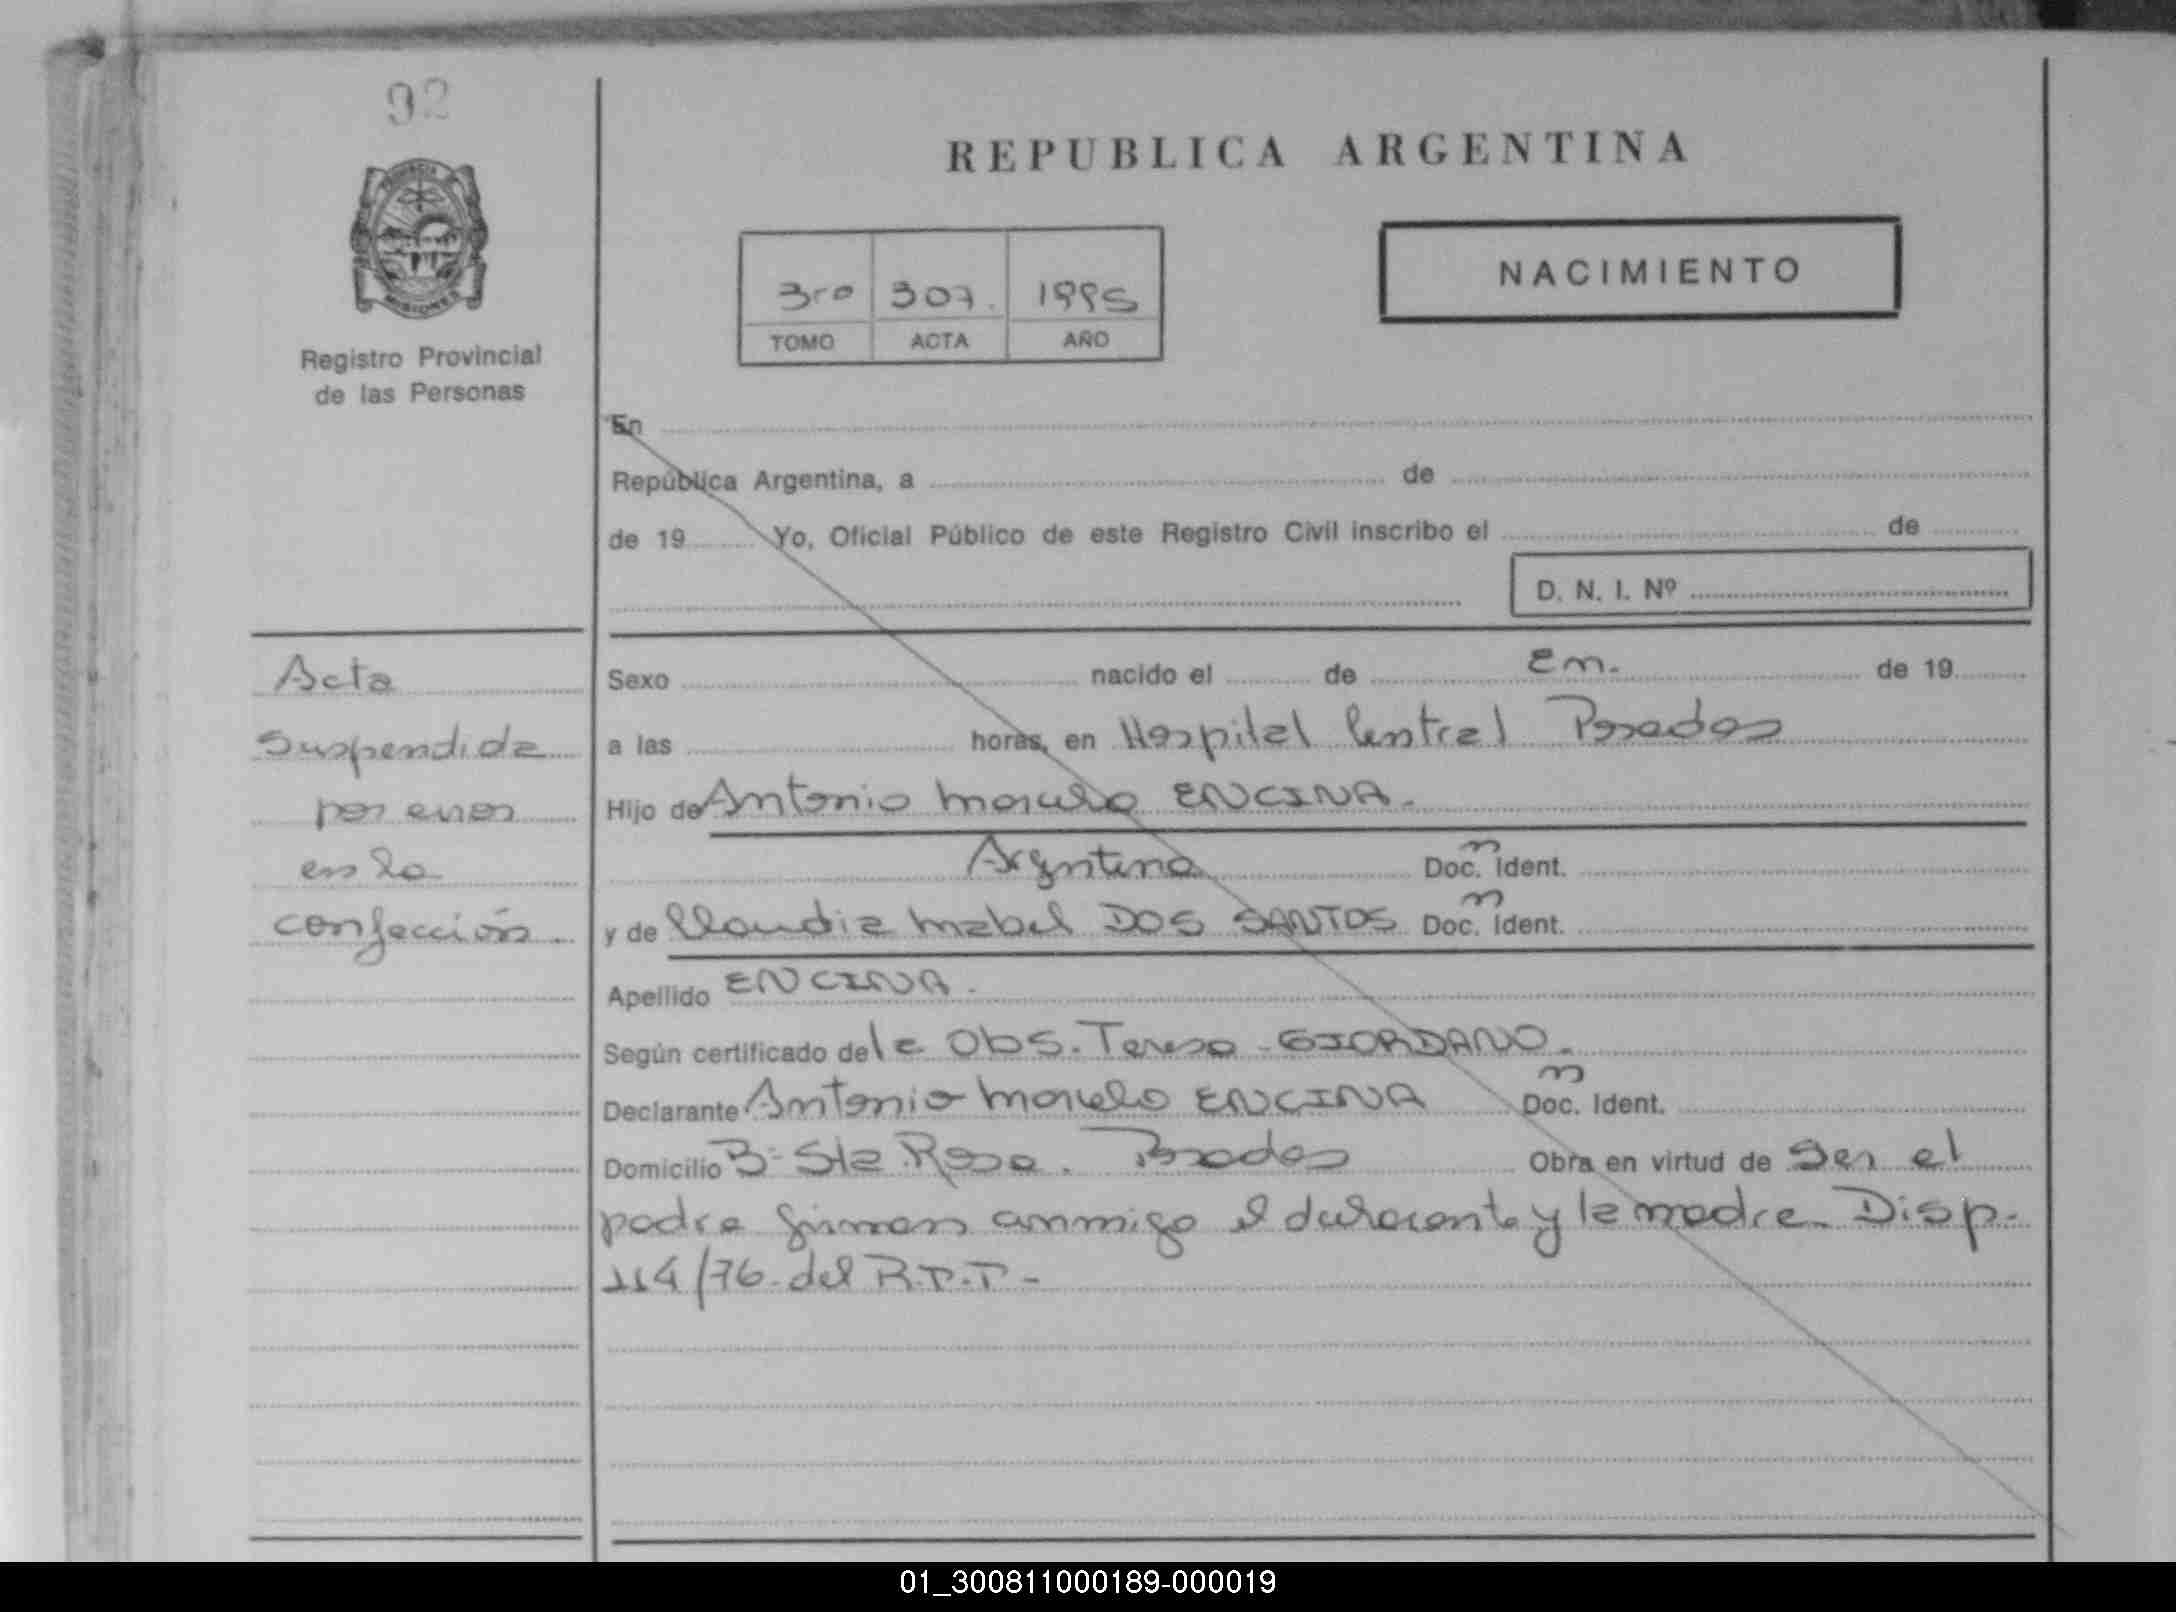 92
PROVINCIA
MISIONES
Registro Provincial
de las Personas
REPUBLICA ARGENTINA
3ro 307. 1995
TOMO ACTA AÑO
NACIMIENTO
En
República Argentina, a de
de 19 Yo, Oficial Público de este Registro Civil inscribo el de
D. N. I. Nº
Acta
Suspendida
por error
en la
confección.
Sexo nacido el de En. de 19
a las horas, en Hospital Central Posadas
Hijo de Antonio Marcelo ENCINA.
Argentina Doc. Ident.
y de Claudia Mabel DOS SANTOS Doc. Ident.
Apellido ENCINA.
Según certificado de la Obs. Teresa GIORDANO.
Declarante Antonio Marcelo ENCINA Doc. Ident.
Domicilio Bº Sta Rosa. Posadas Obra en virtud de Ser el
padre firman conmigo el declarante y la madre. Disp.
114/76 del R.P.P.-
01_300811000189-000019